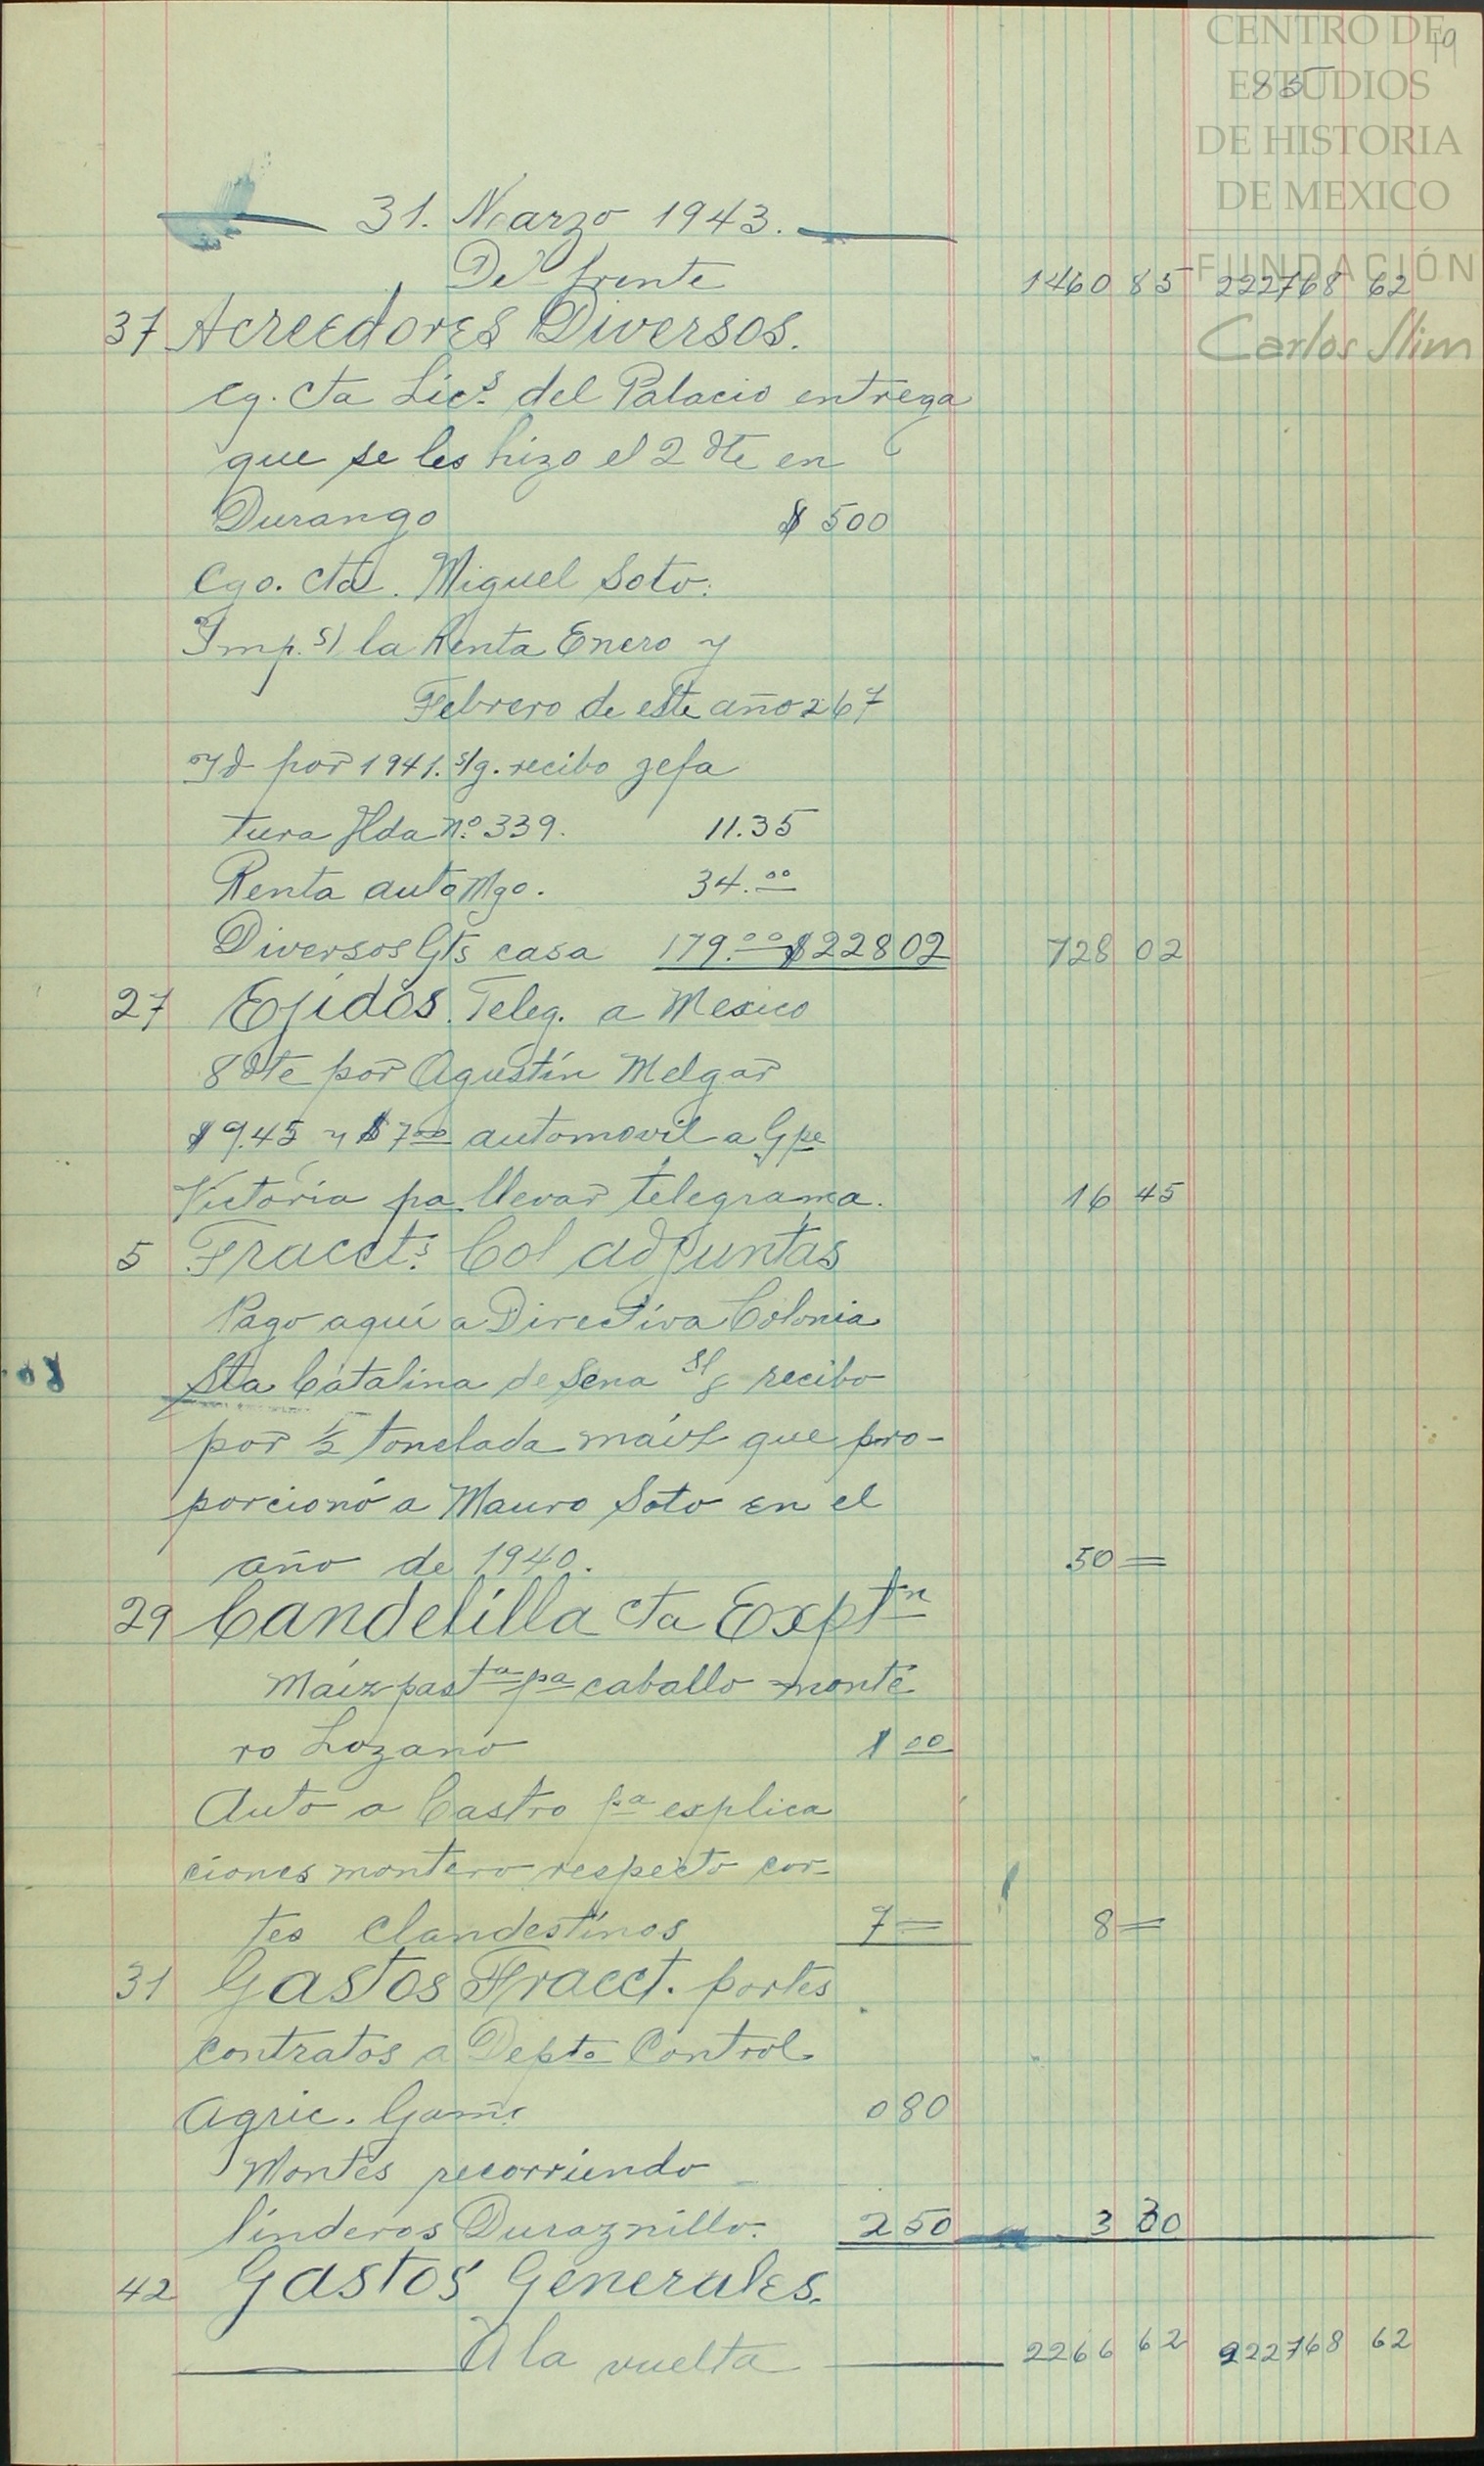 CENTRO DE
ESTUDIOS
DE HISTORIA
DE MEXICO
FUNDACIÓN
Carlos Slim
31. Marzo 1943.
Del frente 1460 85 222768 62
37 Acreedores Diversos.
cg. cta Lics. del Palacio entrega
que se les hizo el 2 dte en
Durango $ 500
Cgo. cta. Miguel Soto.
Imp. s/ la Renta Enero y
Febrero de este año 267
Id por 1941. s/g. recibo jefa
tura Hda no. 339. 11.35
Renta auto Mgo. 34.00
Diversos Gts casa 179.00 $22802 728 02
27 Ejidos. Teleg. a Mexico
8 dte por Agustín Melgar
$9.45 y $7.00 automovil a Gpe
Victoria pa llevar telegrama. 16 45
5 Fracct.s Col adjuntas
Pago aquí a Directiva Colonia
Sta Catalina de Sena s/g recibo
por 1/2 tonelada maíz que pro-
porcionó a Mauro Soto en el
año de 1940. 50 =
29 Candelilla cta Exptn
Maíz past.a pa caballo monte
ro Lozano 1 00
Auto a Castro pa explica
ciones montero respecto cor-
tes clandestinos 7 = 8 =
31 Gastos Fracct. portes
contratos a Depto Control
Agric. Gam. 0 80
Montes recorriendo
linderos Duraznillo. 2 50 3 30
42 Gastos Generales.
A la vuelta 2266 62 222768 62